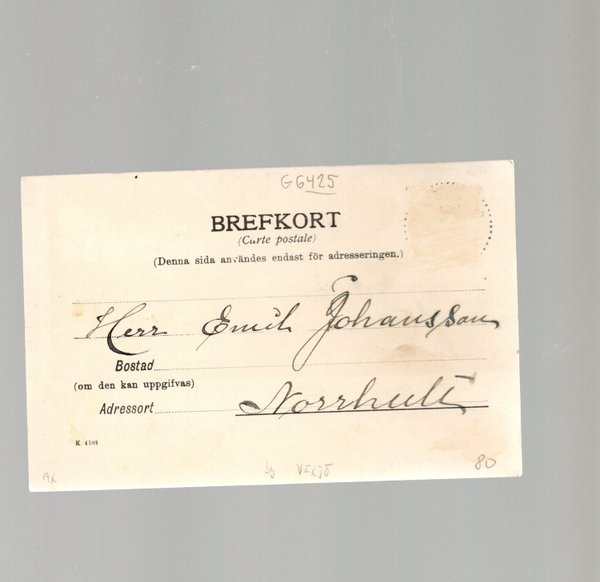 G6425
BREFKORT
(Carte postale)
(Denna sida användes endast för adresseringen.)
Herr Emil Johansson
Bostad
(om den kan uppgifvas)
Adressort Norrhult
K. 4108
VÄXJÖ
80